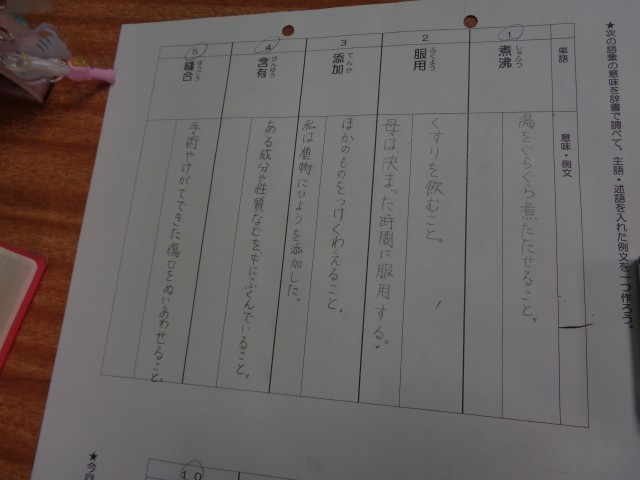 ★次の語彙の意味を辞書で調べて、主語・述語を入れた例文を一つ作ろう。
単語
意味・例文
1
煮沸
しゃふつ
湯をぐらぐら煮たたせること。
2
服用
ふくよう
くすりを飲むこと。
母は決まった時間に服用する。
3
添加
てんか
ほかのものをつけくわえること。
私は植物にひようを添加した。
4
含有
がんゆう
ある成分や性質などを中にふくんでいること。
5
縫合
ほうごう
手術やけがでできた傷口をぬいあわせること。
10